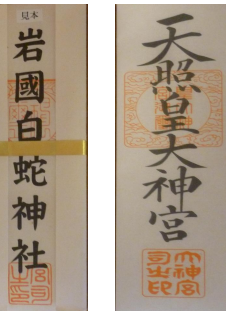 見本
岩國白蛇神社
天照皇大神宮
大神宮
司之印